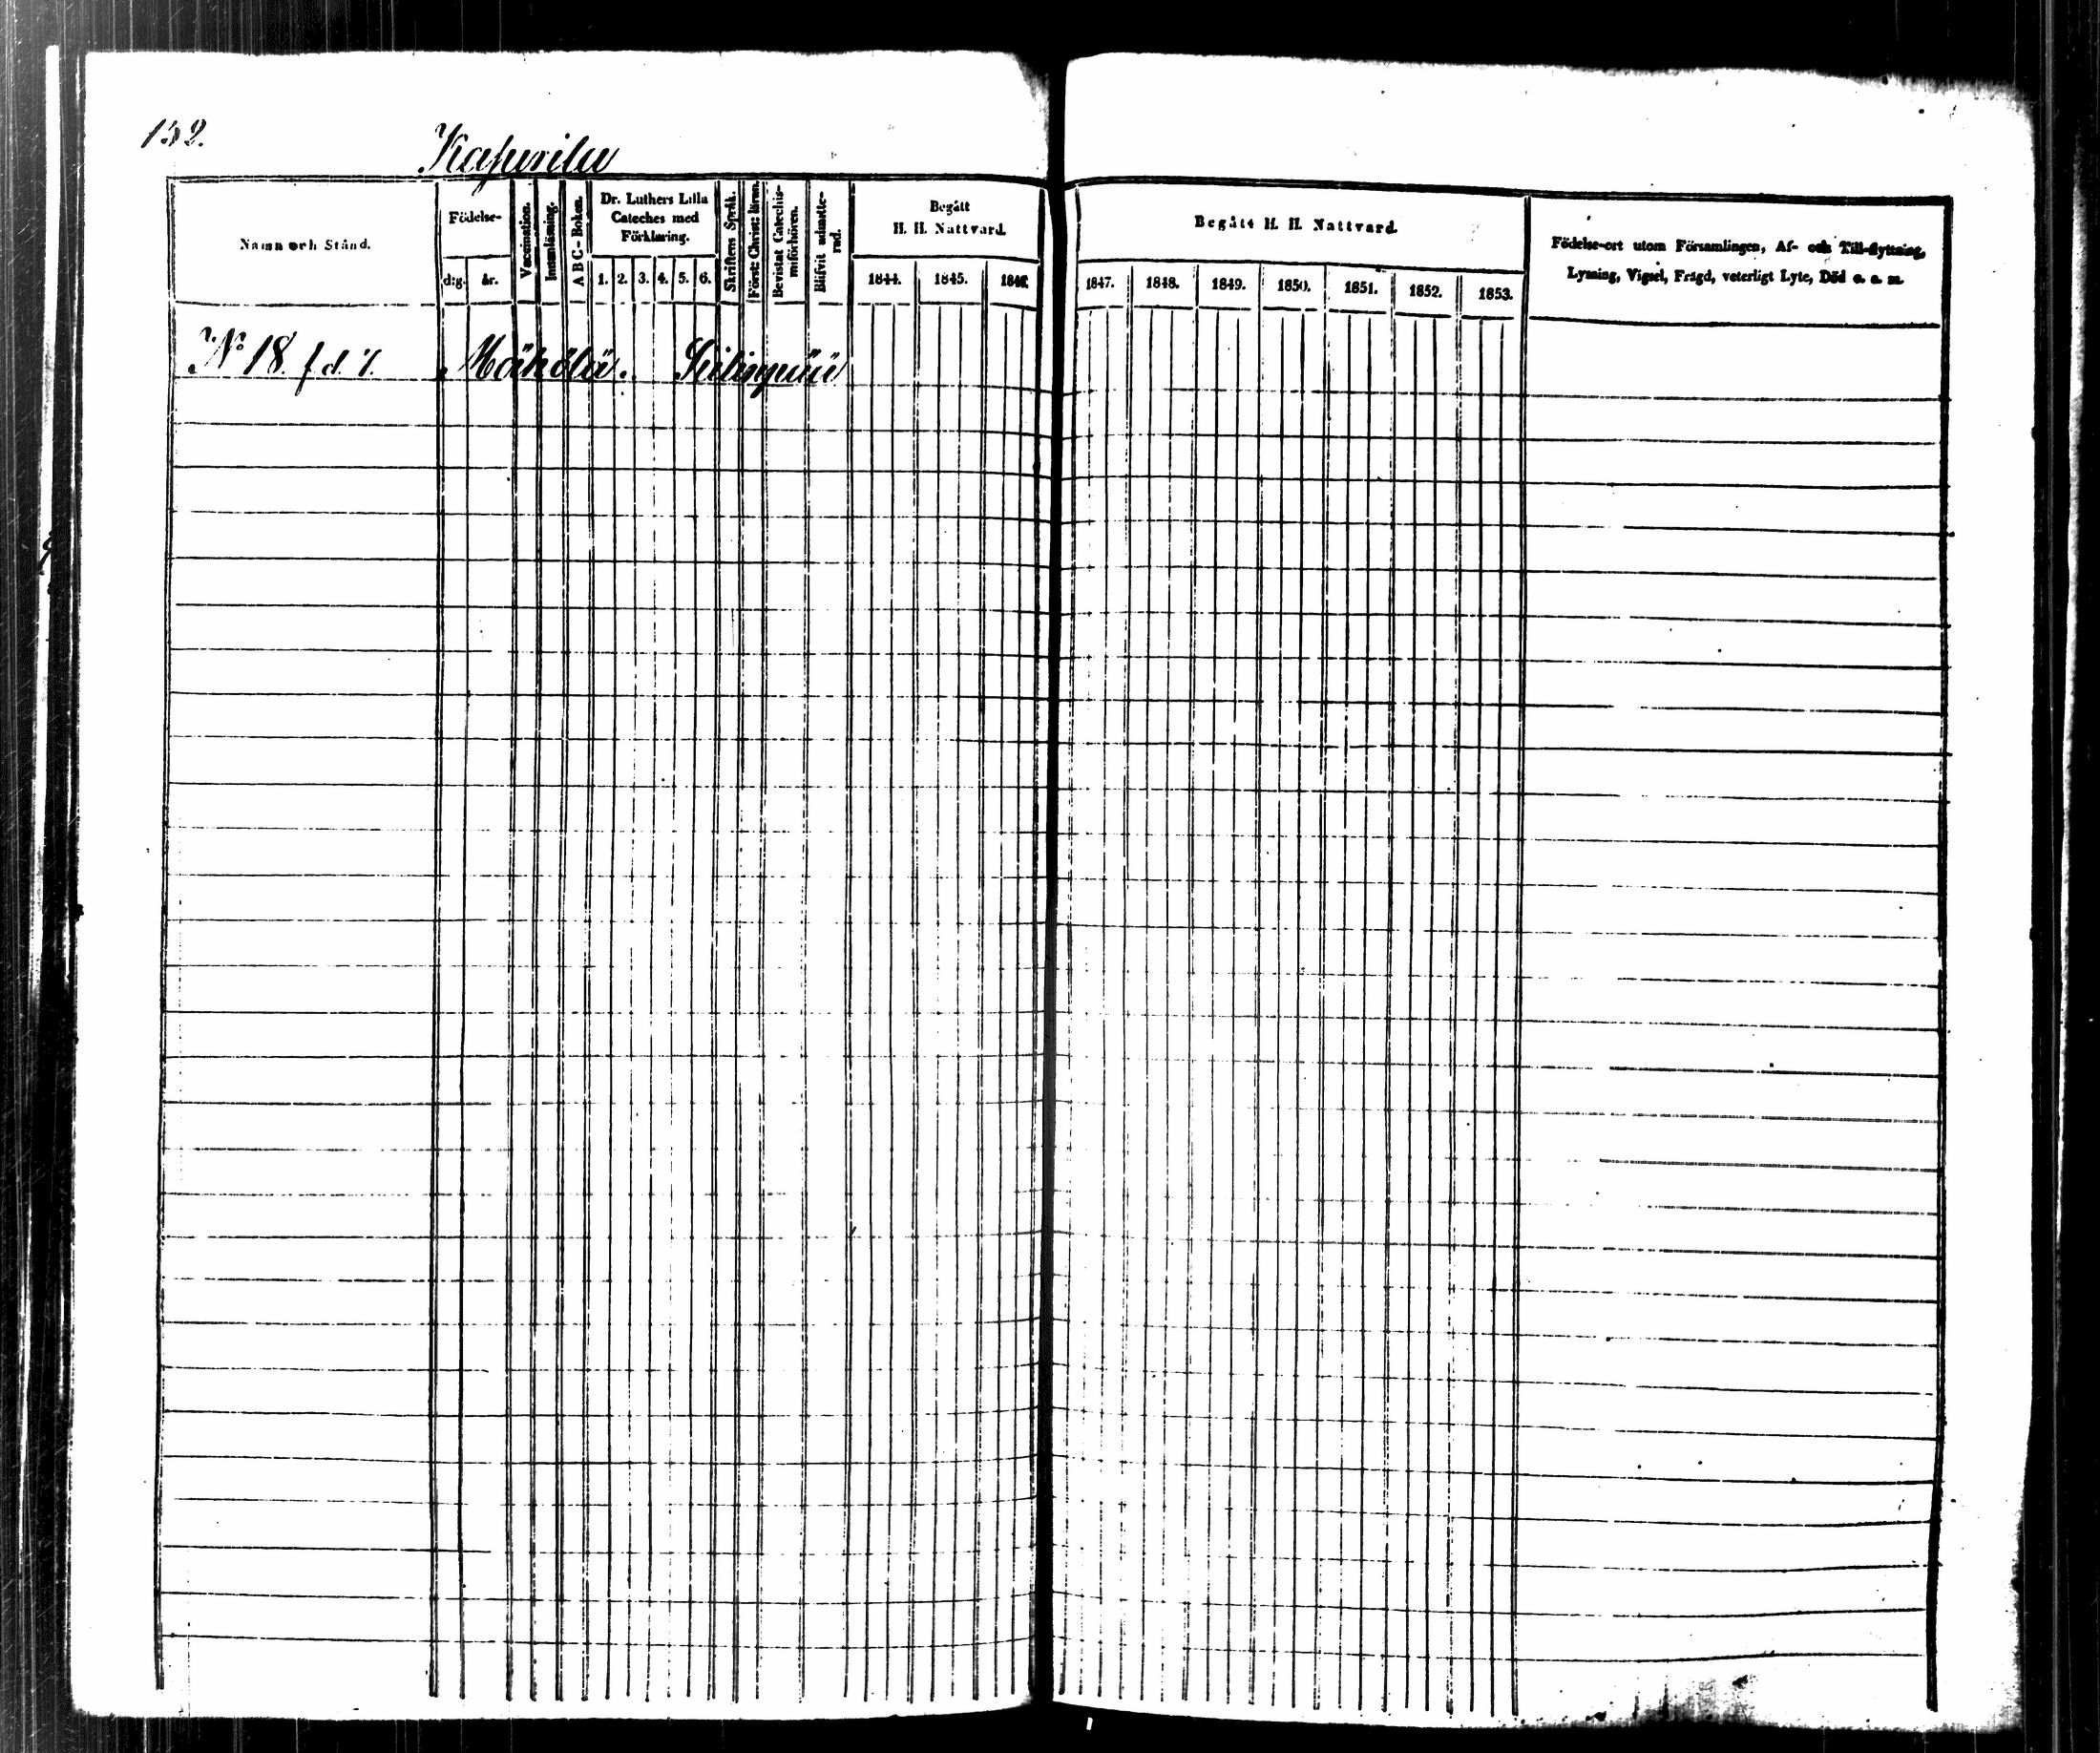 132.
Kapusila
Namn och Stånd.
Födelse-
d:g. år.
Vaccination.
Innanläsning.
ABC-Boken.
Dr. Luthers Lilla
Cateches med
Förklaring.
1. 2. 3. 4. 5. 6.
Skriftens Språk.
Först: Christ: läran.
Bevistat Catechis-
miförhören.
Blifvit admitte-
rad.
Begått
H. H. Nattvard.
1844. 1845. 1846.
Begått H. H. Nattvard.
1847. 1848. 1849. 1850. 1851. 1852. 1853.
Födelse-ort utom Församlingen, Af- och Till-flyttning,
Lysning, Vigsel, Frägd, veterligt Lyte, Död o. s. m.
No 18. f. d. 7. Mähölä. Seilinpää